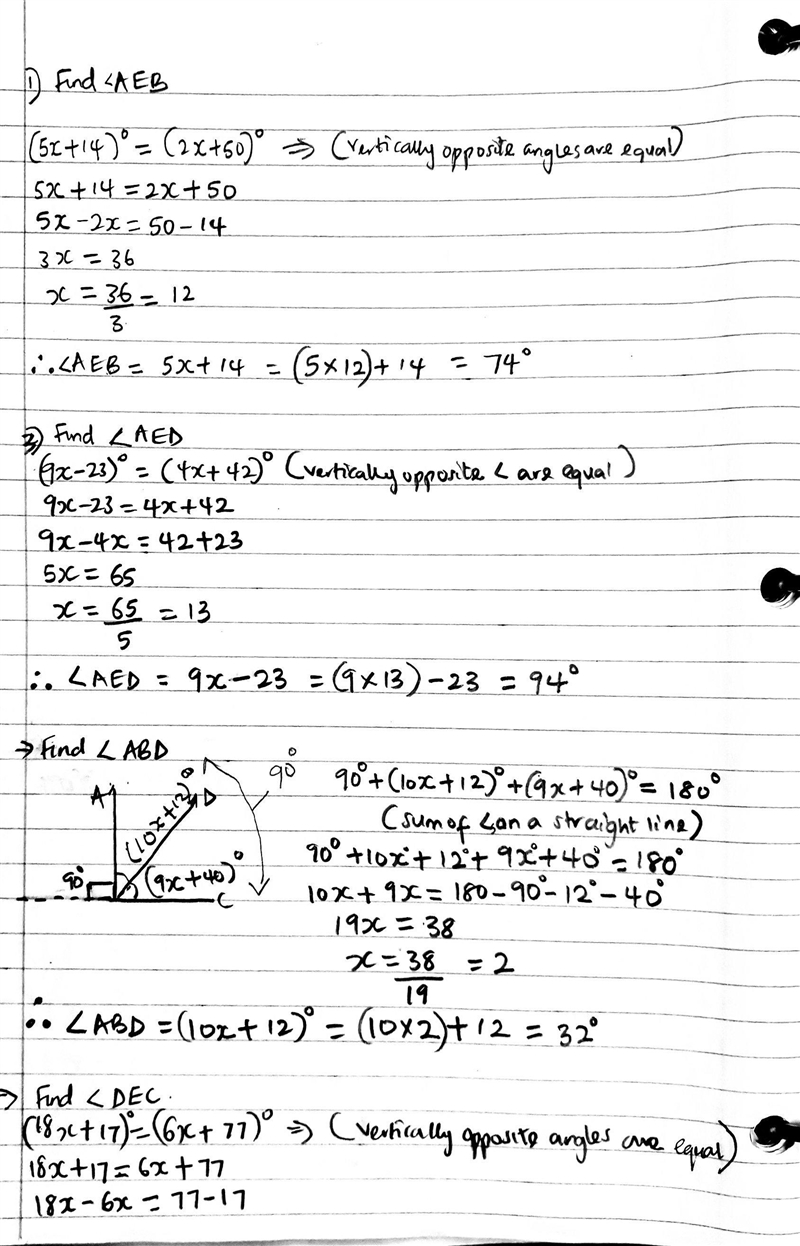 1) Find <AEB
(5x+14)° = (2x+50)° ⇒ (vertically opposite angles are equal)
5x+14 = 2x+50
5x-2x = 50-14
3x = 36
x = 36/3 = 12
∴ <AEB = 5x+14 = (5×12)+14 = 74°
2) Find <AED
(9x-23)° = (4x+42)° (vertically opposite < are equal)
9x-23 = 4x+42
9x-4x = 42+23
5x = 65
x = 65/5 = 13
∴ <AED = 9x-23 = (9×13)-23 = 94°
→ Find <ABD
A D 90°
(10x+12)°
90° (9x+40)°
C
90°+(10x+12)°+(9x+40)° = 180°
(sum of < on a straight line)
90°+10x°+12°+9x°+40° = 180°
10x+9x = 180-90°-12°-40°
19x = 38
x = 38/19 = 2
∴ <ABD = (10x+12)° = (10×2)+12 = 32°
→ Find <DEC.
(18x+17)° = (6x+77)° ⇒ (vertically opposite angles are equal)
18x+17 = 6x+77
18x-6x = 77-17